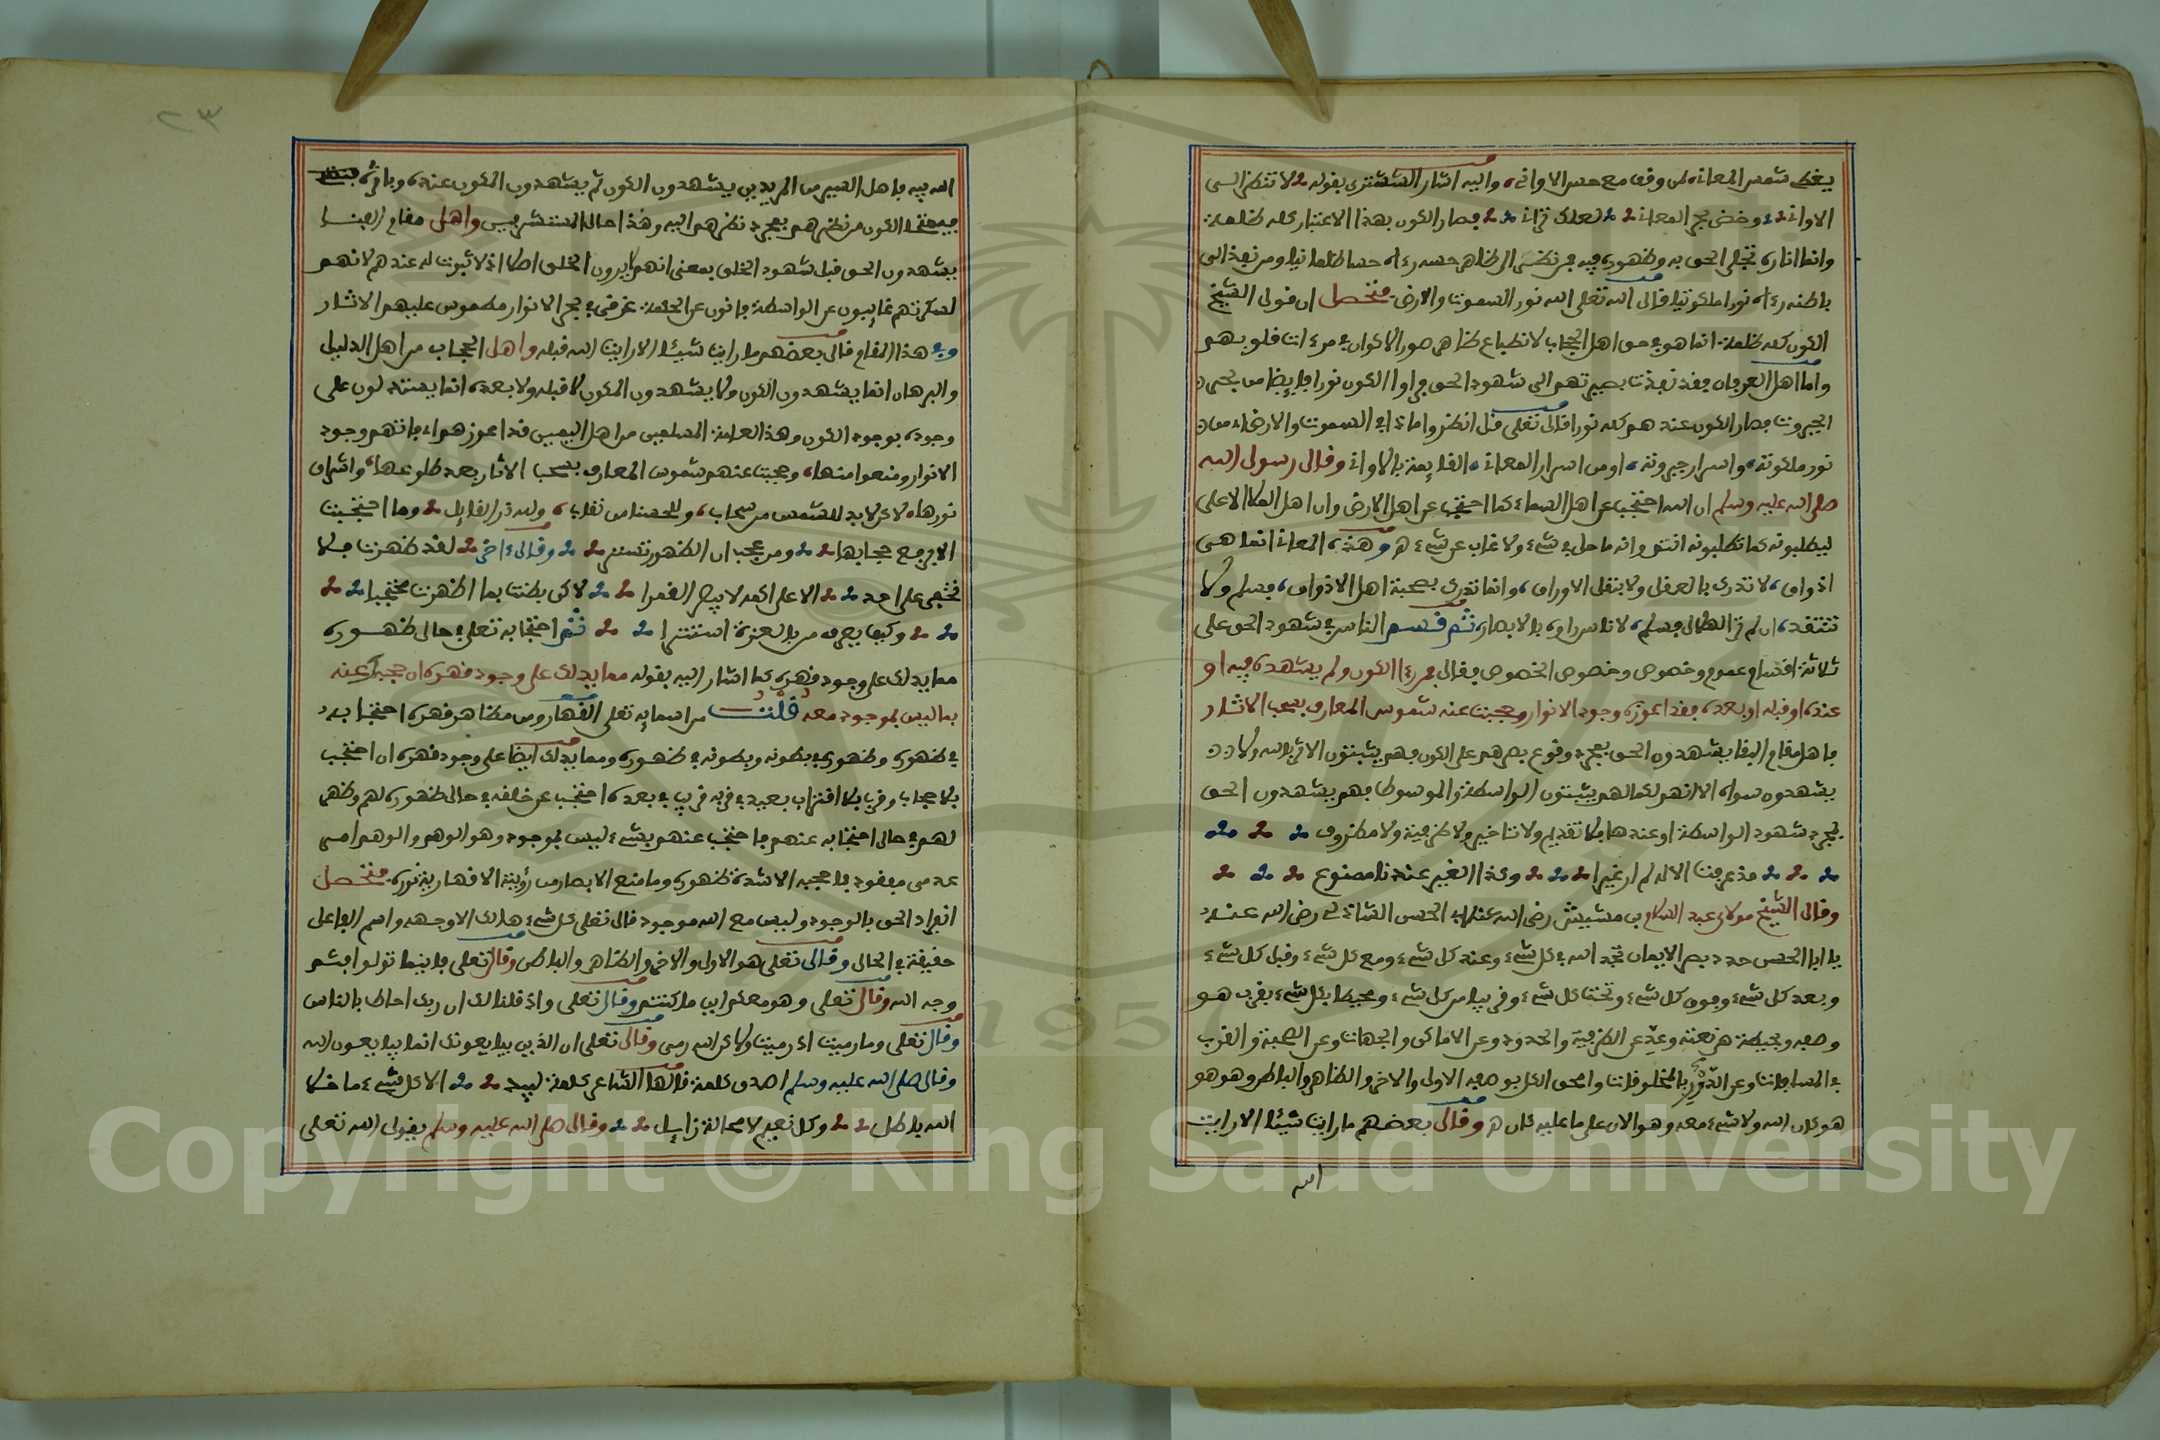 يغطي شمس المعاني لمن وقف مع حس الاواني، واليه اشار الششتري بقوله لا تنظر الى
الاواني وخض بحر المعاني لعلك تراني فصار الكون بهذا الاعتبار كله ظلمة
وانما اناره تجلي الحق به وظهوره فيه فمن نظر الى ظاهر حسه رءاه حسا ظلمانيا ومن نفذ الى
باطنه رءاه نورا ملكوتيا قال الله تعلى الله نور السموت والارض فتحصل ان قول الشيخ
الكون كله ظلمة انما هو في حق اهل الحجاب لانطباع ظاهر صور الاكوان في مرءات قلوبهم
واما اهل العرفان فقد نفذت بصيرتهم الى شهود الحق فراوا الكون نورا فايضا من بحر
الجبروت فصار الكون عندهم كله نورا قال تعلى قل انظروا ماذا في السموت والارض اي من
نور ملكوته، واسرار جبروته، او من اسرار المعاني، القايمة بالاواني وقال رسول الله
صلى الله عليه وسلم ان الله احتجب عن اهل السماء كما احتجب عن اهل الارض وان اهل الملا الاعلى
ليطلبونه كما تطلبونه انتم وانه ما حل في شيء ولا غاب عن شيء ه وهذه المعاني انما هي
اذواق، لا تدرك بالعقل ولا بنقل الاوراق، وانما تدرك بصحبة اهل الاذواق، فسلم ولا
تنتقد، ان لم تر الهلال فسلم، لاناس راوه بالابصار، ثم قسم الناس في شهود الحق على
ثلاثة اقسام عموم وخصوص وخصوص الخصوص فقال فمن رءا الكون ولم يشهده فيه او
عنده او قبله او بعده فقد اعوزه وجود الانوار وحجبت عنه شموس المعارف بسحب الاثار
فاهل مقام البقا يشهدون الحق بمجرد وقوع بصرهم على الكون فهم يثبتون الاثر بالله ولا
يشهدون سواه الا انهم لكمالهم يثبتون الواسطة والموسوط فهم يشهدون الحق
بمجرد شهود الواسطة او عندها بلا تقديم ولا تاخير ولا ظرفية ولا مظروف
مذ عرفت الاله لم ار غيرا وكذا الغير عندنا ممنوع
وقال الشيخ مولاي عبد السلام بن مشيش رضي الله عنه لابي الحسن الشاذلي رضي الله عنه
يا ابا الحسن حدد بصر الايمان تجد الله في كل شيء وعند كل شيء ومع كل شيء وقبل كل شيء
وبعد كل شيء وفوق كل شيء وتحت كل شيء وقريبا من كل شيء ومحيطا بكل شيء بقرب هو
وصفه وبحيطة هي نعته وعد عن الظرفية والحدود وعن الاماكن والجهات وعن الصحبة والقرب
في المسافات وعن الدور بالمخلوقات وامحق الكل بوصفه الاول والاخر والظاهر والباطن وهو هو
هو كان الله ولا شيء معه وهو الان على ما عليه كان ه وقال بعضهم ما رايت شيئا الا رايت
الله
٢٣
الله فيه فاهل السير من المريدين يشهدون الكون ثم يشهدون المكون عنده وباثره
الكون من نظرهم بمجرد نظرهم اليه وهذا حال المستشرفين واهل مقام الفنا
يشهدون الحق قبل شهود الخلق بمعنى انهم لا يرون الخلق اصلا اذ لا ثبوت له عندهم لانهم
لسكرتهم غايبون عن الواسطة فانون عن الحكمة غرقى في بحر الانوار مطموس عليهم الاثار
وفي هذا المقام قال بعضهم ما رايت شيئا الا رايت الله قبله واهل الحجاب من اهل الدليل
والبرهان انما يشهدون الكون ولا يشهدون المكون لا قبله ولا بعده انما يستدلون على
وجوده بوجود الكون وهذا لعامة المسلمين من اهل اليمين قد اعوزهم اي فاتهم وجود
الانوار ومنعوا منها، وحجبت عنهم شموس المعارف بسحب الاثار بعد طلوعها، واشراق
نورها، لاكن لابد للشمس من سحاب، وللحسنا من نقاب، ولله در القايل وما احتجبت
الا برفع حجابها ومن عجب ان الظهور تستر وقال ءاخر لقد ظهرت فلا
تخفى على احد الا على اكمه لا يبصر القمرا لاكن بطنت بما اظهرت محتجبا
وكيف يعرف من بالعزة استترا ثم احتجابه تعلى في حال ظهوره
مما يدلك على وجود قهره كما اشار اليه بقوله مما يدلك على وجود قهره ان حجبك عنه
بما ليس بموجود معه قلت من اسمايه تعلى القهار ومن مظاهر قهره احتجابه
في ظهوره وظهوره في بطونه وبطونه في ظهوره ومما يدلك ايضا على وجود قهره ان احتجب
بلا حجاب وقرب بلا اقتراب بعيد في قربه قريب في بعده احتجب عن خلقه في حال ظهوره لهم وظهر
لهم في حال احتجابه عنهم فاحتجب عنهم بشيء ليس بموجود وهو الوهم والوهم امر
عدمي مفقود فما حجبه الا شدة ظهوره وما منع الابصار من رؤيته الا قهارية نوره فتحصل
انفراد الحق بالوجود وليس مع الله موجود قال تعلى كل شيء هالك الا وجهه واسم الفاعل
حقيقة في الحال وقال تعلى هو الاول والاخر والظاهر والباطن وقال تعلى فاينما تولوا فثم
وجه الله وقال تعلى وهو معكم اين ما كنتم وقال تعلى واذ قلنا لك ان ربك احاط بالناس
وقال تعلى وما رميت اذ رميت ولاكن الله رمى وقال تعلى ان الذين يبايعونك انما يبايعون الله
وقال صلى الله عليه وسلم اصدق كلمة قالها الشاعر كلمة لبيد الا كل شيء ما خلا
الله باطل وكل نعيم لا محالة زايل وقال صلى الله عليه وسلم يقول الله تعلى